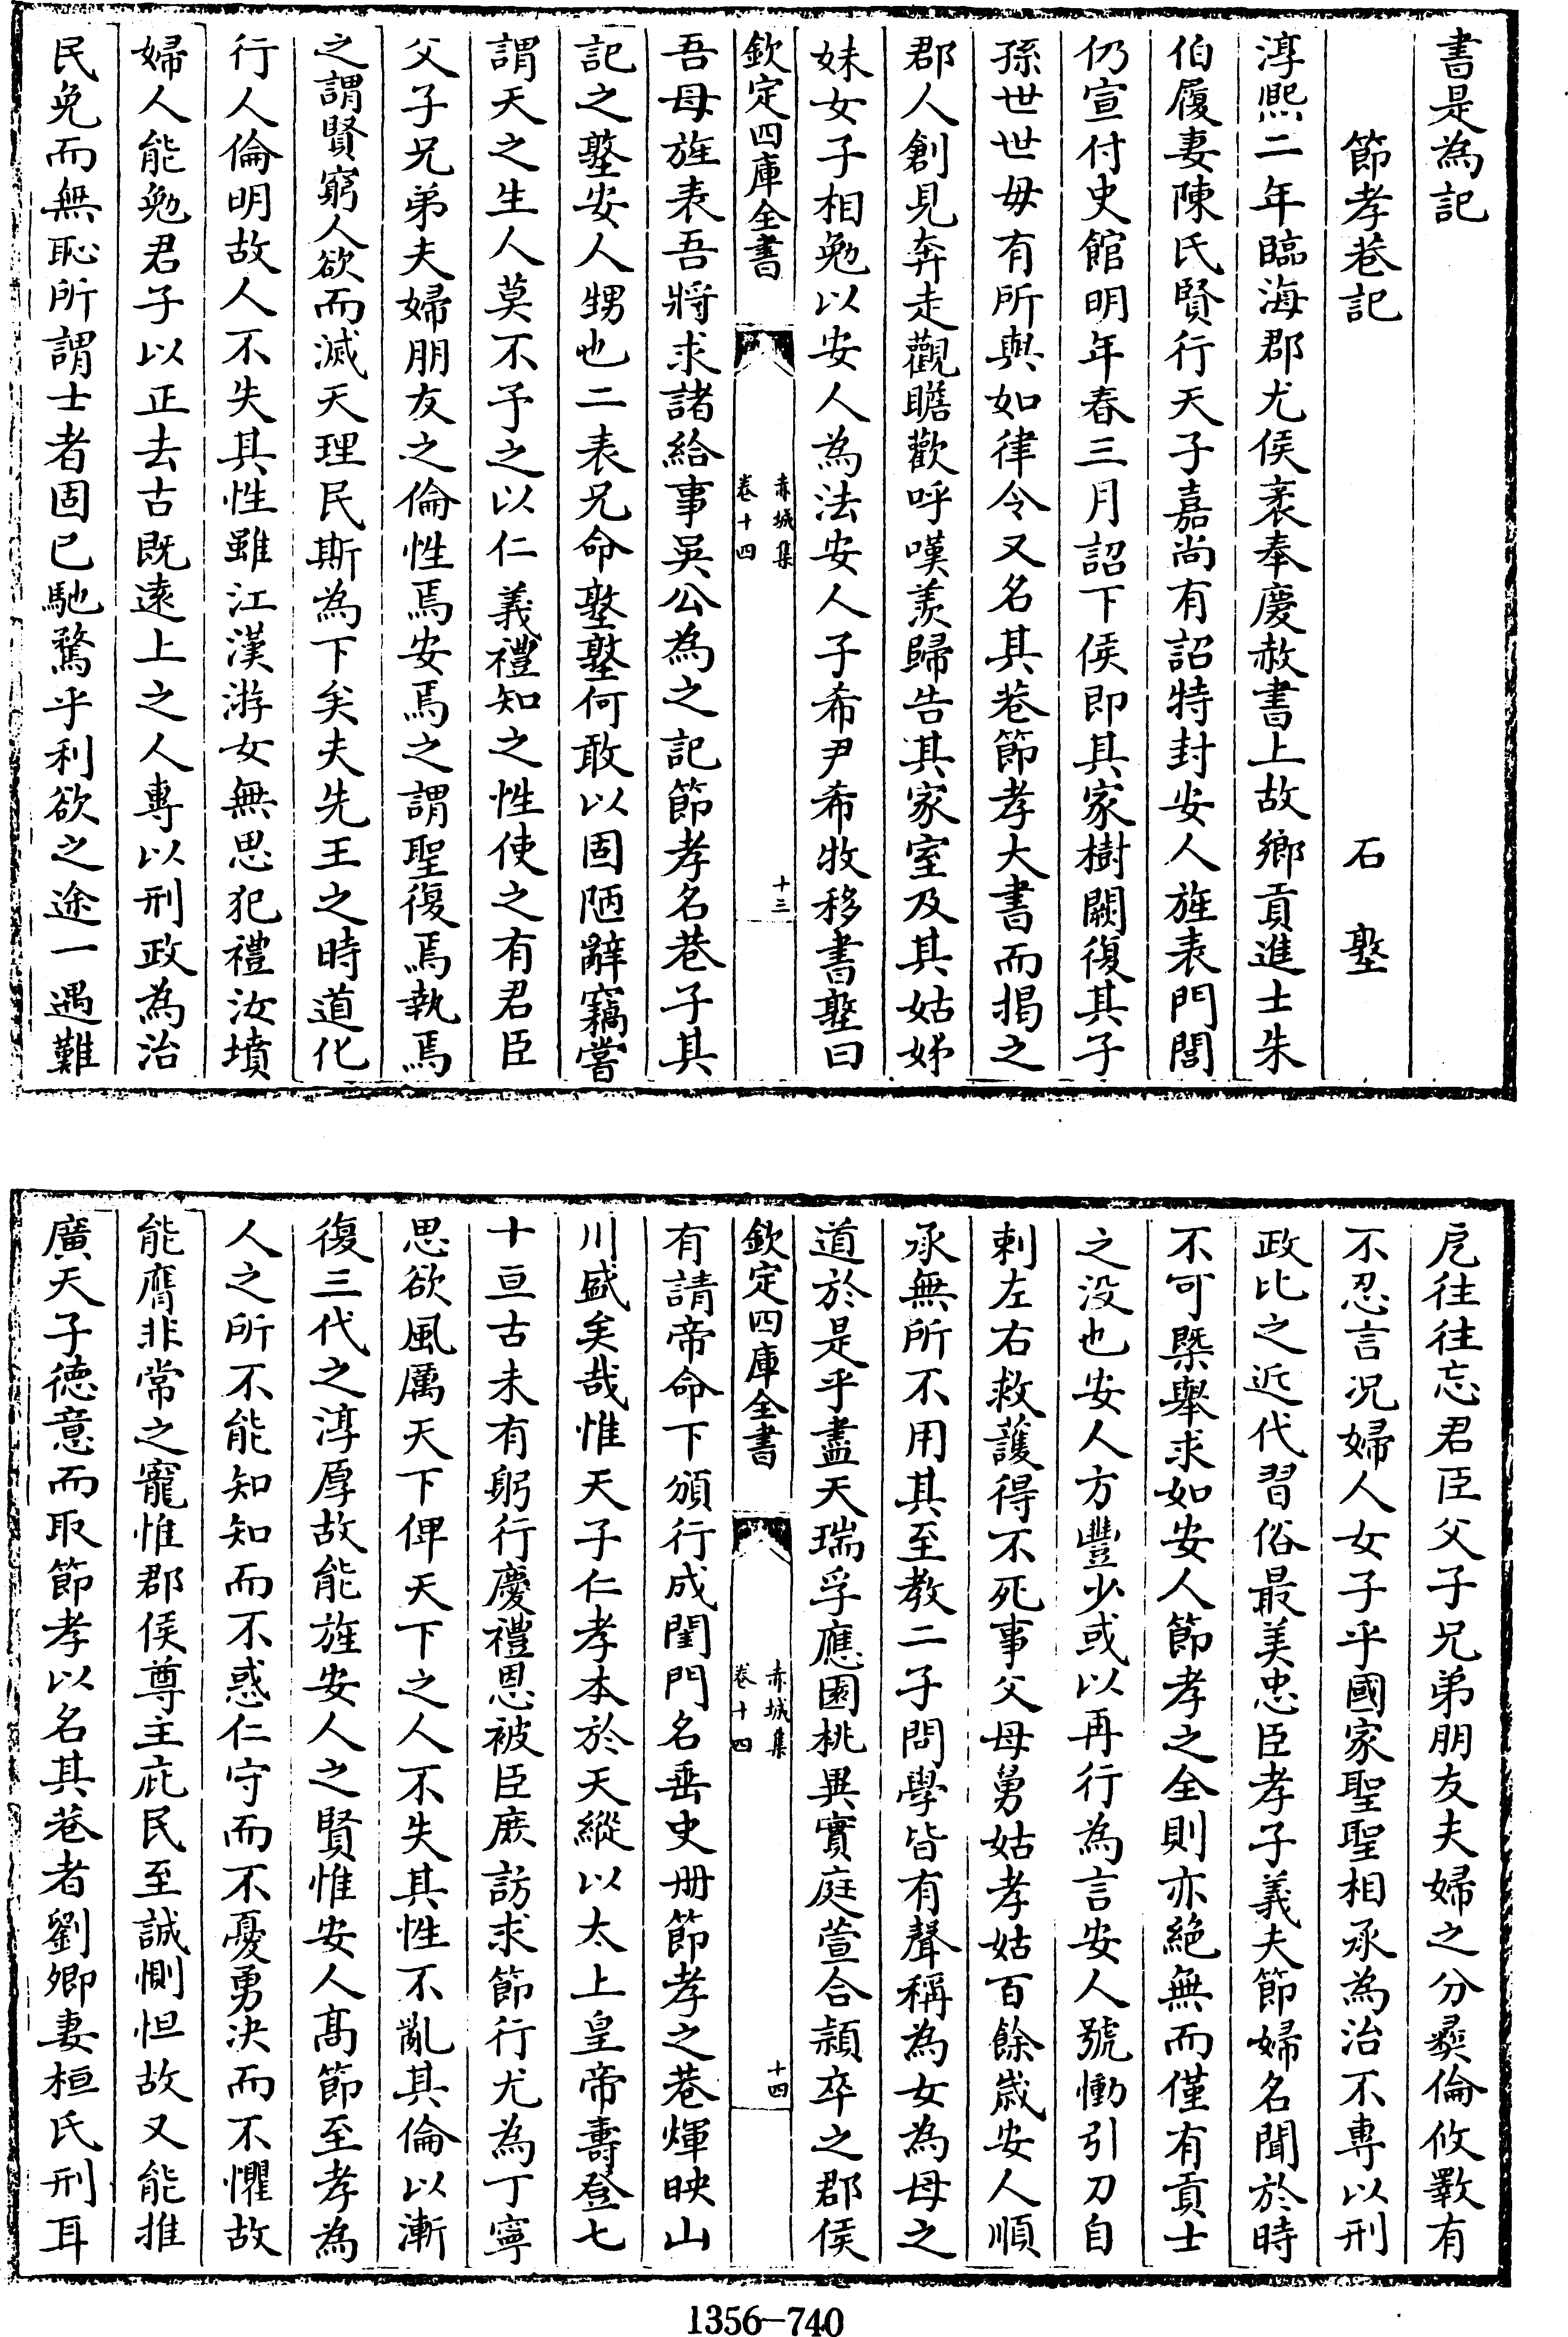 書是為記
節孝巷記 石𡼖
淳熙二年臨海郡尤侯袤奉慶赦書上故鄉貢進士朱
伯履妻陳氏賢行天子嘉尚有詔特封安人旌表門閭
仍宣付史館明年春三月詔下侯即其家樹闕復其子
孫世世毋有所與如律令又名其巷節孝大書而揭之
郡人創見奔走觀瞻歡呼嘆羨歸告其家室及其姑姊
妹女子相勉以安人為法安人子希尹希牧移書𡼖曰
欽定四庫全書 赤城集 卷十四 十三
吾母旌表吾將求諸給事吳公為之記節孝名巷子其
記之𡼖安人甥也二表兄命𡼖𡼖何敢以固陋辭竊嘗
謂天之生人莫不予之以仁義禮知之性使之有君臣
父子兄弟夫婦朋友之倫性焉安焉之謂聖復焉執焉
之謂賢窮人欲而滅天理民斯為下矣夫先王之時道化
行人倫明故人不失其性雖江漢游女無思犯禮汝墳
婦人能勉君子以正去古既遠上之人專以刑政為治
民免而無恥所謂士者固已馳騖乎利欲之途一遇難
戹往往忘君臣父子兄弟朋友夫婦之分彛倫攸斁有
不忍言况婦人女子乎國家聖聖相承為治不專以刑
政比之近代習俗最美忠臣孝子義夫節婦名聞於時
不可槩舉求如安人節孝之全則亦絶無而僅有貢士
之没也安人方豐少或以再行為言安人號慟引刀自
刺左右救護得不死事父母舅姑孝姑百餘歲安人順
承無所不用其至教二子問學皆有聲稱為女為母之
道於是乎盡天瑞孚應園桃異實庭萱合穎卒之郡侯
欽定四庫全書 赤城集 卷十四 十四
有請帝命下頒行成閨門名垂史册節孝之巷煇映山
川盛矣哉惟天子仁孝本於天縱以太上皇帝壽登七
十亘古未有躬行慶禮恩被臣庶訪求節行尤為丁寧
思欲風厲天下俾天下之人不失其性不亂其倫以漸
復三代之淳厚故能旌安人之賢惟安人高節至孝為
人之所不能知知而不惑仁守而不憂勇決而不懼故
能膺非常之寵惟郡侯尊主庇民至誠惻怛故又能推
廣天子徳意而取節孝以名其巷者劉卿妻桓氏刑耳
1356—740